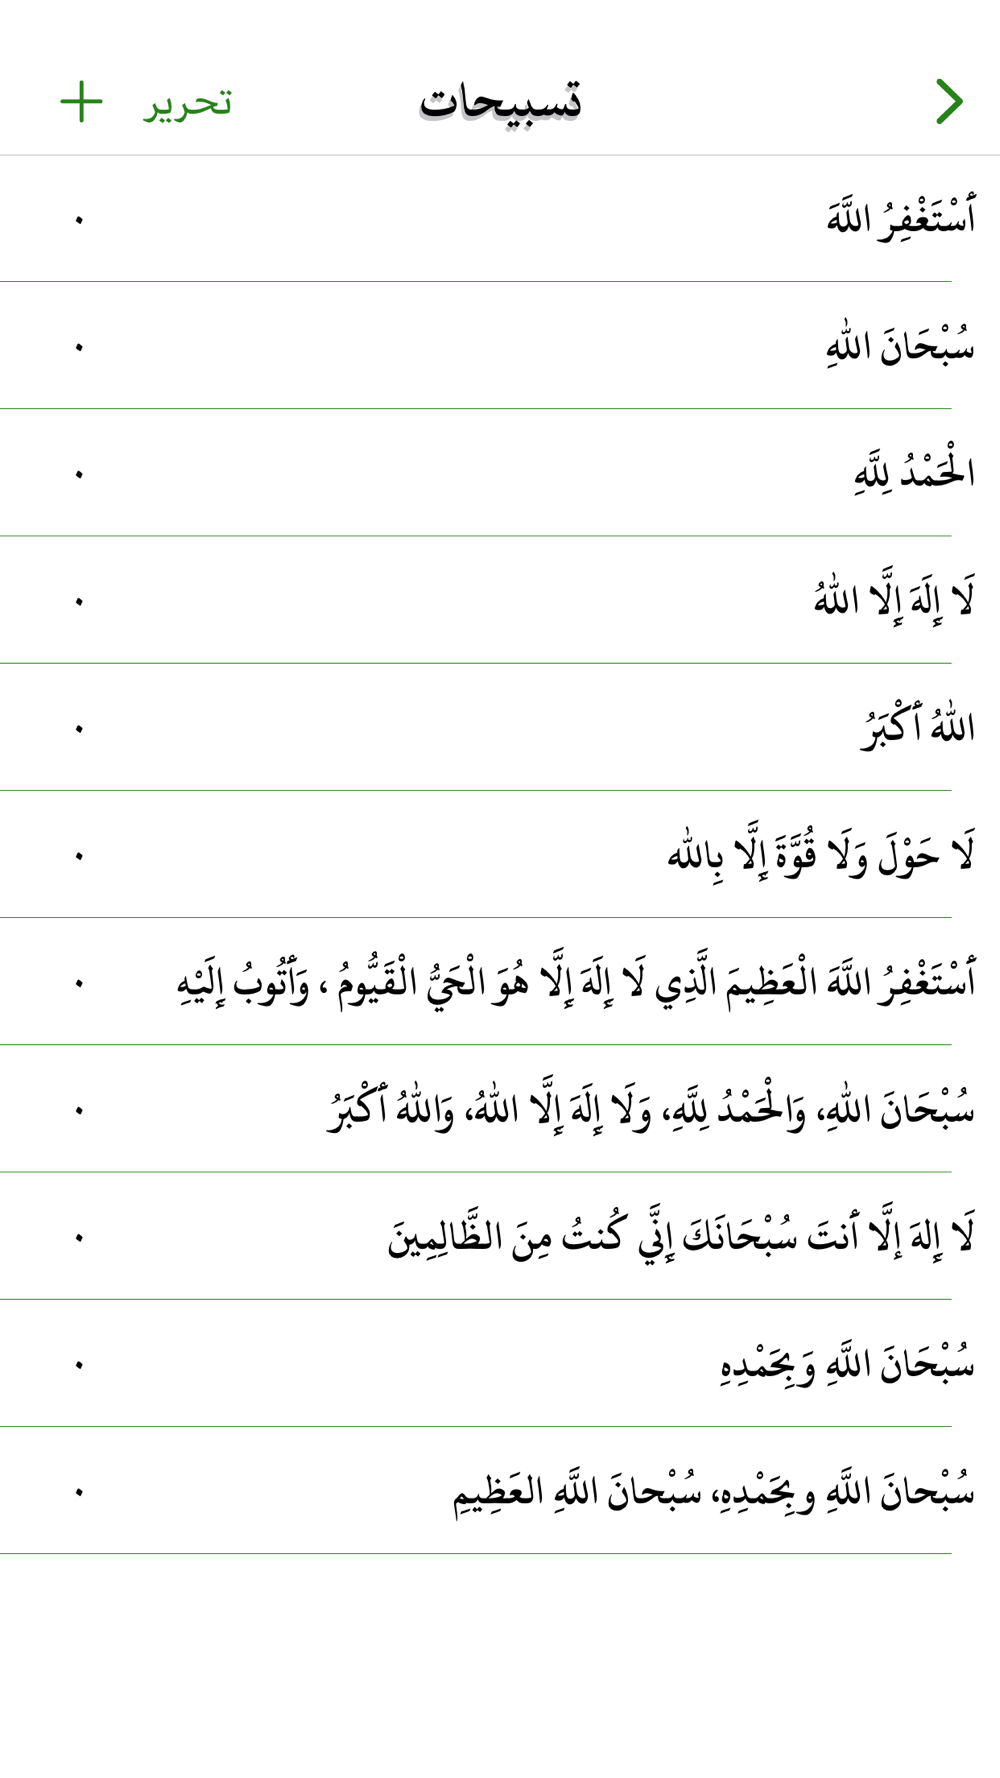 تسبيحات تحرير +
أَسْتَغْفِرُ اللَّهَ ٠
سُبْحَانَ اللهِ ٠
الْحَمْدُ لِلَّهِ ٠
لَا إِلَهَ إِلَّا اللهُ ٠
اللهُ أَكْبَرُ ٠
لَا حَوْلَ وَلَا قُوَّةَ إِلَّا بِالله ٠
أَسْتَغْفِرُ اللَّهَ الْعَظِيمَ الَّذِي لَا إِلَهَ إِلَّا هُوَ الْحَيُّ الْقَيُّومُ ، وَأَتُوبُ إِلَيْهِ ٠
سُبْحَانَ اللهِ، وَالْحَمْدُ لِلَّهِ، وَلَا إِلَهَ إِلَّا اللهُ، وَاللهُ أَكْبَرُ ٠
لَا إِلهَ إلَّا أَنتَ سُبْحَانَكَ إِنَّي كُنتُ مِنَ الظَّالِمِينَ ٠
سُبْحَانَ اللَّهِ وَبِحَمْدِهِ ٠
سُبْحانَ اللَّهِ وبِحَمْدِهِ، سُبْحانَ اللَّهِ العَظِيمِ ٠